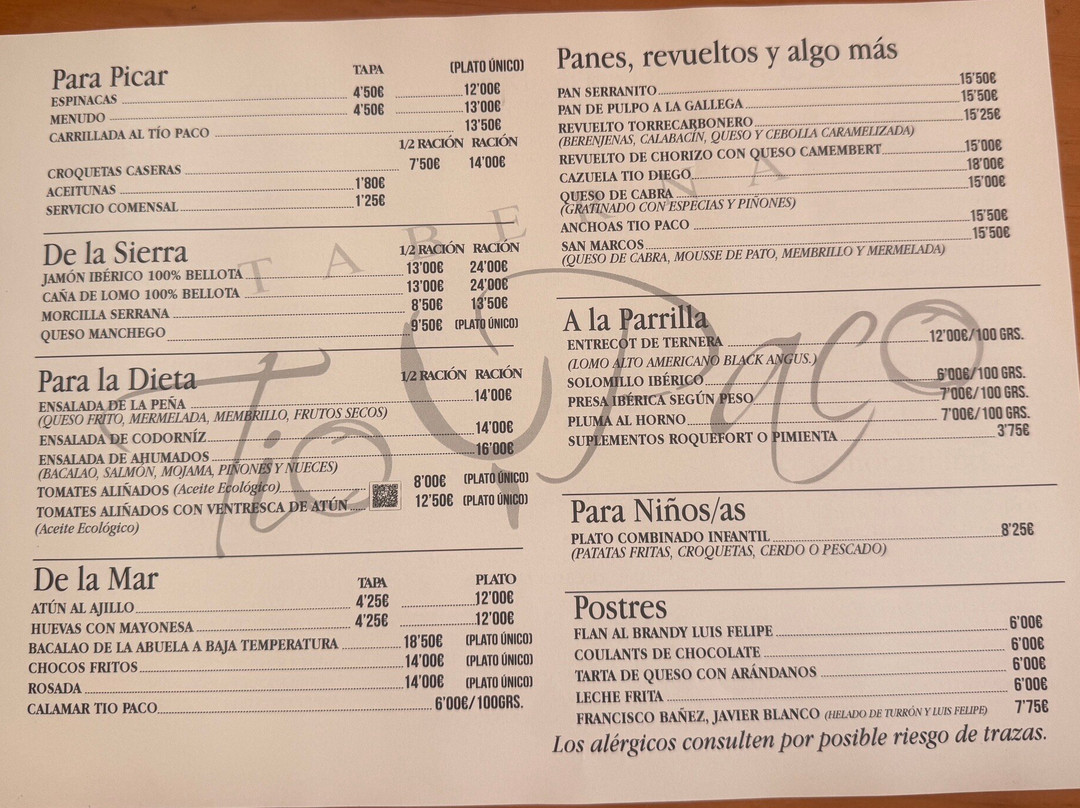 Para Picar TAPA (PLATO ÚNICO)
ESPINACAS 4'50€ 12'00€
MENUDO 4'50€ 13'00€
CARRILLADA AL TÍO PACO 13'50€
1/2 RACIÓN RACIÓN
CROQUETAS CASERAS 7'50€ 14'00€
ACEITUNAS 1'80€
SERVICIO COMENSAL 1'25€
De la Sierra 1/2 RACIÓN RACIÓN
JAMÓN IBÉRICO 100% BELLOTA 13'00€ 24'00€
CAÑA DE LOMO 100% BELLOTA 13'00€ 24'00€
MORCILLA SERRANA 8'50€ 13'50€
QUESO MANCHEGO 9'50€ (PLATO ÚNICO)
Para la Dieta 1/2 RACIÓN RACIÓN
ENSALADA DE LA PEÑA 14'00€
(QUESO FRITO, MERMELADA, MEMBRILLO, FRUTOS SECOS)
ENSALADA DE CODORNÍZ 14'00€
ENSALADA DE AHUMADOS 16'00€
(BACALAO, SALMÓN, MOJAMA, PIÑONES Y NUECES)
TOMATES ALIÑADOS (Aceite Ecológico) 8'00€ (PLATO ÚNICO)
TOMATES ALIÑADOS CON VENTRESCA DE ATÚN 12'50€ (PLATO ÚNICO)
(Aceite Ecológico)
De la Mar TAPA PLATO
ATÚN AL AJILLO 4'25€ 12'00€
HUEVAS CON MAYONESA 4'25€ 12'00€
BACALAO DE LA ABUELA A BAJA TEMPERATURA 18'50€ (PLATO ÚNICO)
CHOCOS FRITOS 14'00€ (PLATO ÚNICO)
ROSADA 14'00€ (PLATO ÚNICO)
CALAMAR TIO PACO 6'00€/100GRS.
Panes, revueltos y algo más
PAN SERRANITO 15'50€
PAN DE PULPO A LA GALLEGA 15'50€
REVUELTO TORRECARBONERO 15'25€
(BERENJENAS, CALABACÍN, QUESO Y CEBOLLA CARAMELIZADA)
REVUELTO DE CHORIZO CON QUESO CAMEMBERT 15'00€
CAZUELA TIO DIEGO 18'00€
QUESO DE CABRA 15'00€
(GRATINADO CON ESPECIAS Y PIÑONES)
ANCHOAS TIO PACO 15'50€
SAN MARCOS 15'50€
(QUESO DE CABRA, MOUSSE DE PATO, MEMBRILLO Y MERMELADA)
A la Parrilla
ENTRECOT DE TERNERA 12'00€/100 GRS.
(LOMO ALTO AMERICANO BLACK ANGUS.)
SOLOMILLO IBÉRICO 6'00€/100 GRS.
PRESA IBÉRICA SEGÚN PESO 7'00€/100 GRS.
PLUMA AL HORNO 7'00€/100 GRS.
SUPLEMENTOS ROQUEFORT O PIMIENTA 3'75€
Para Niños/as
PLATO COMBINADO INFANTIL 8'25€
(PATATAS FRITAS, CROQUETAS, CERDO O PESCADO)
Postres
FLAN AL BRANDY LUIS FELIPE 6'00€
COULANTS DE CHOCOLATE 6'00€
TARTA DE QUESO CON ARÁNDANOS 6'00€
LECHE FRITA 6'00€
FRANCISCO BAÑEZ, JAVIER BLANCO (HELADO DE TURRÓN Y LUIS FELIPE) 7'75€
Los alérgicos consulten por posible riesgo de trazas.
TABERNA
Tio Paco